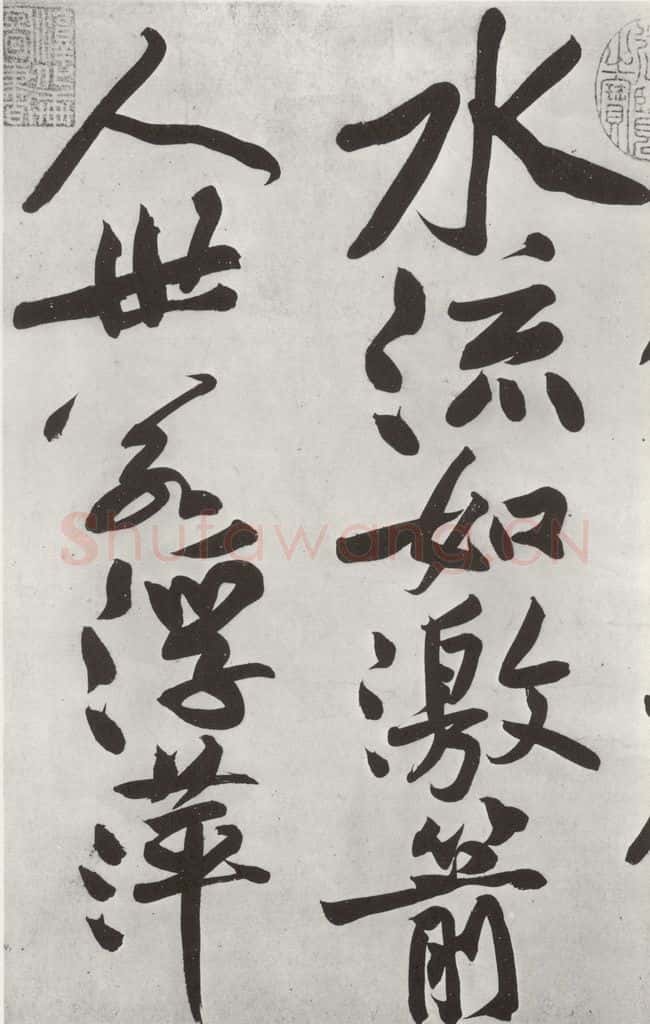 水流如激箭
人世若浮萍
Shufawang.CN